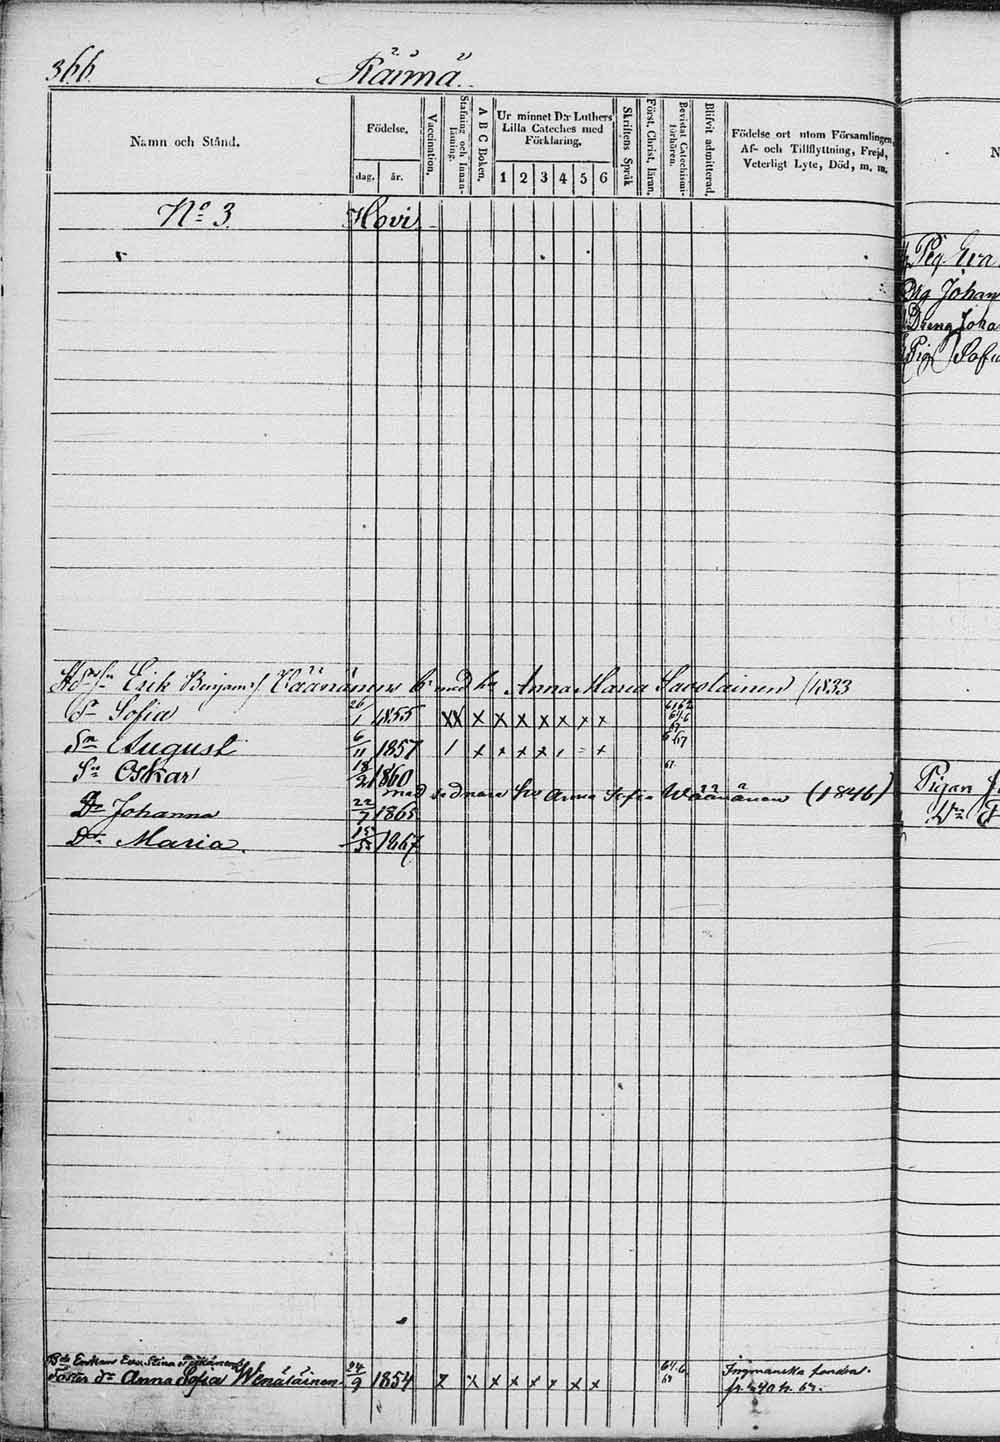 366.
Räimä.
Namn och Stånd.
Födelse.
dag. år.
Vaccination.
Stafning och Innanläsning.
A B C Boken.
Ur minnet D:r Luthers Lilla Cateches med Förklaring.
1 2 3 4 5 6
Skriftens Språk
Först. Christ. läran.
Bevistat Catechismiförhören.
Blifvit admitterad.
Födelse ort utom Församlingen, Af- och Tillflyttning, Frejd, Veterligt Lyte, Död, m. m.
N
No 3. Hovi
Erik Benjam:s/ Väänänens b. med hu Anna Maria Savolainen /1833
Dr Sofia 26/1 1855 XX x x x x x x x
Sn August 6/11 1857 1 x x x x
Sn Oskar 18/2 1860
med sednare hu Anna Sofia Wäänänen (1846)
Dr Johanna 22/7 1865
Dr Maria. 1867
Enkans Eva Stina
Foster dr Anna Sofia Wenäläinen 24/9 1854 x x x x x x x x
Pig. Eva
Drg Johan
Dreng Joha
Pig Sofia
Pigan